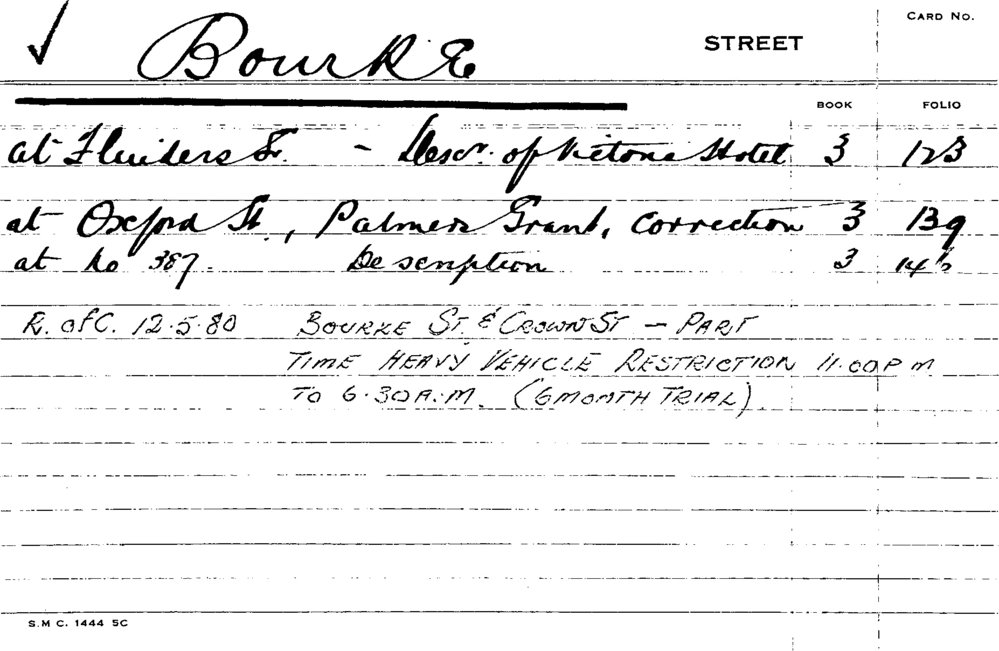 CARD NO.
Bourke STREET
BOOK FOLIO
at Flinders St. - Descr. of Victoria Hotel 3 123
at Oxford St., Palmers Grant, correction 3 139
at No 387. Description 3
R. of C. 12.5.80 BOURKE ST. & CROWN ST - PART
TIME HEAVY VEHICLE RESTRICTION 11.00 P M
TO 6.30 A.M. (6 MONTH TRIAL)
S.M C. 1444 5C